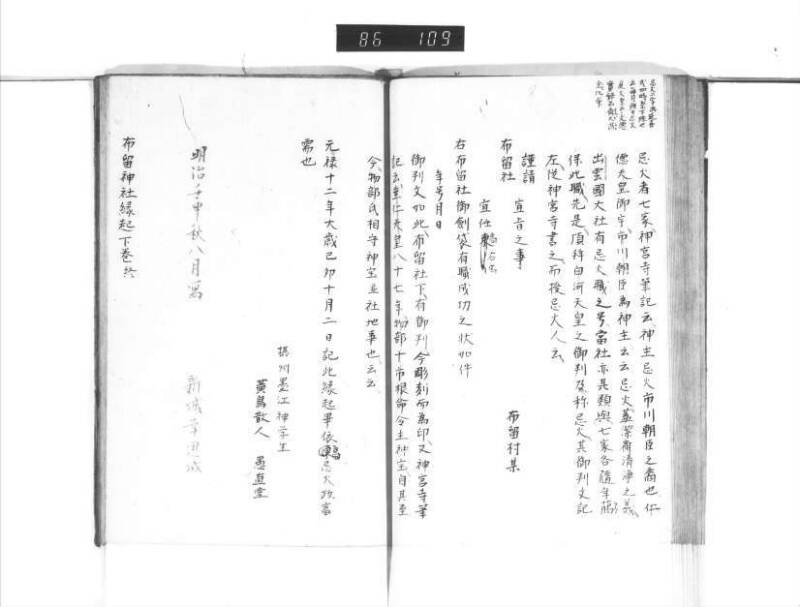 86 109
忌火者七家神宮寺筆記云神主忌火市川朝臣之裔也仁
德天皇御宇市川朝臣為神主云云忌火蓋潔齋清淨之義
出雲國大社有忌火職之号當社亦是類與七家各隨年﨟
保此職先是頂拜白河天皇之御判及称忌火其御判文記
左從神宮寺書之而授忌火人云
謹請
宣旨之事
布留社
布留村某
宣任
右布留社御劍袋有職成功之状如件
年号月日
御判文如此布留社下有御判今彫刻而為印又神宮寺筆
記云垂仁天皇八十七年物部十市根命令主神宝自其至
今物部氏相守神宝並社地事也云云
元禄十二年大歳己卯十月二日記此縁起畢依忌火政富
需也
摂州墨江神学生
黄鳥散人 愚直堂
明治壬申秋八月寫
布留神社縁起下巻終